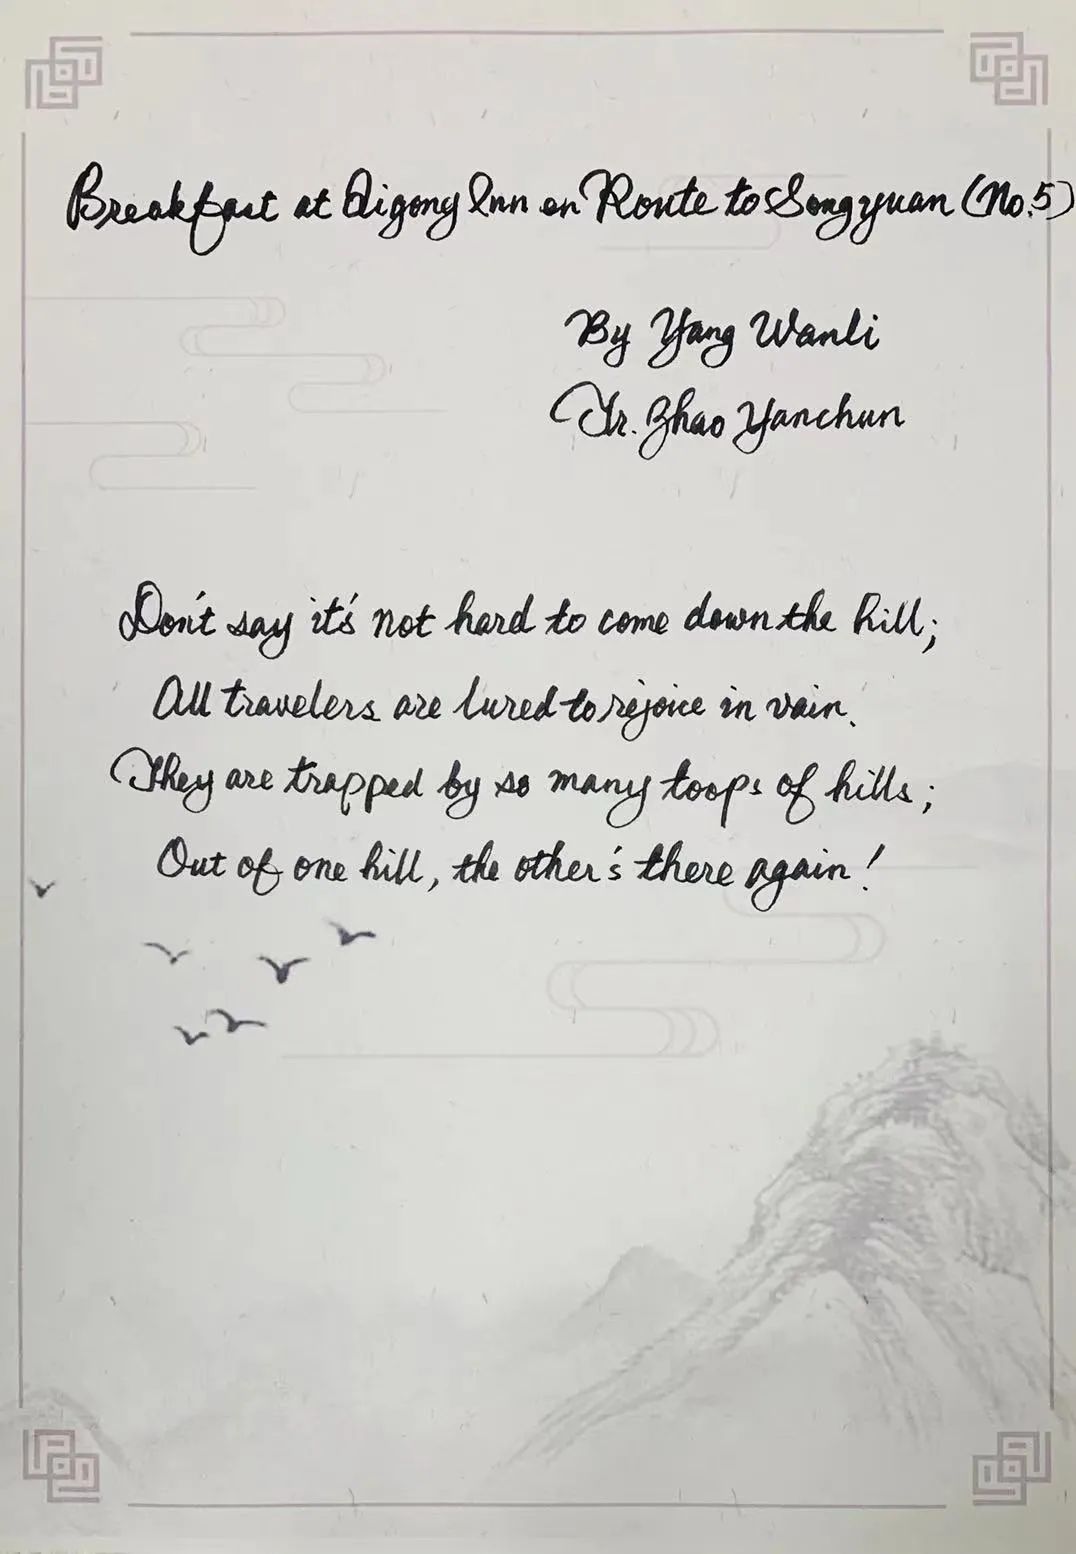 Breakfast at Qigong Inn en Route to Songyuan (No.5)
By Yang Wanli
Tr. Zhao Yanchun
Don't say it's not hard to come down the hill;
All travelers are lured to rejoice in vain.
They are trapped by so many toops of hills;
Out of one hill, the other's there again!